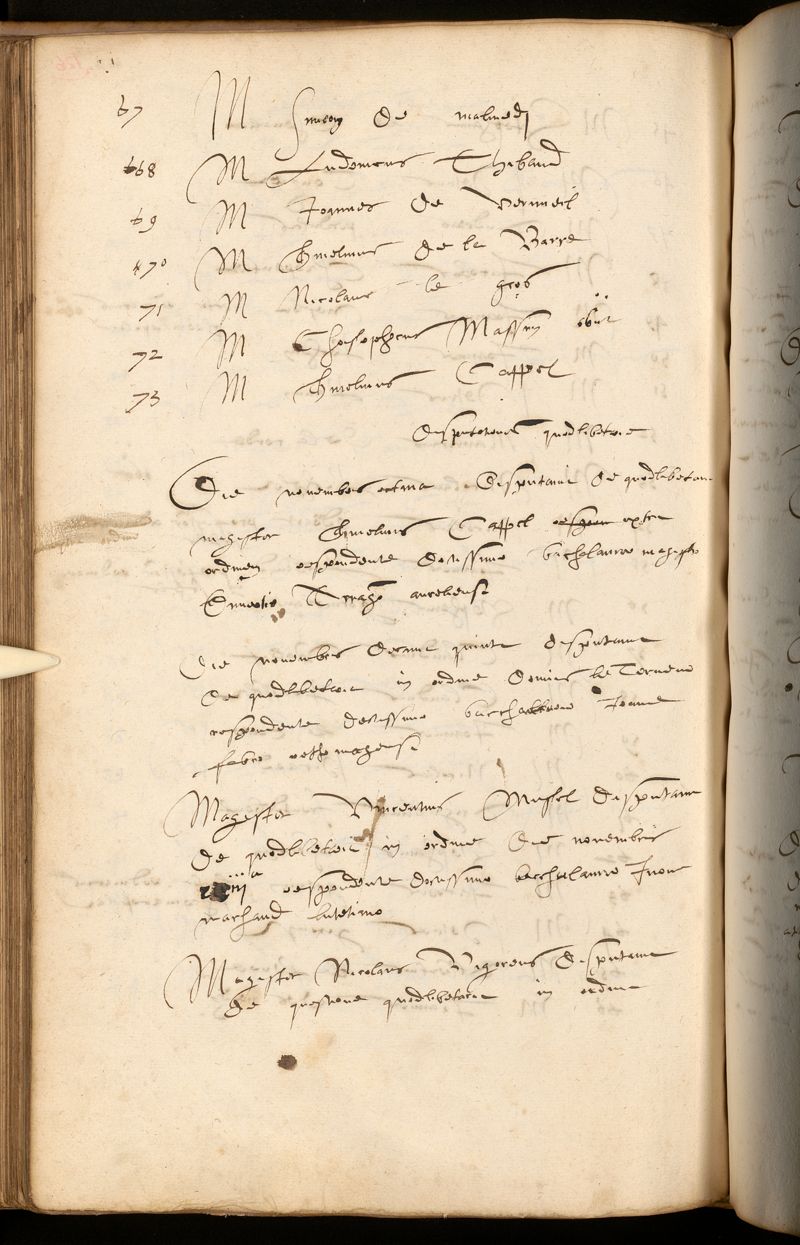 67 M Simeon de malmedy
68 M Ludovicus Thibaud
69 M Joannes de Vermeil
70 M Guielmus de la Barre
71 M Nicolaus le gros
72 M Christophorus Massin obiit
73 M Guielmus Cappel
disputationes quodlibetarie
Die novembris octava disputavit de quodlibetaria
magister Guielmus Cappel extra
ordinem respondente doctissimo bachalaureo magistro
aureliensi
Die novembris decima quinta disputavit
de quodlibetaria in ordine le
respondente doctissimo bacchalaureo Joanne
fabro rothomagensi
Magister Vincentius Mustel disputavit
de quodlibetaria in ordine die novembris
respondente doctissimo bacchalaureo Ivone
marchand lutetiano
Magister Nicolaus Vigoreus disputavit
de questione quodlibetaria in ordine